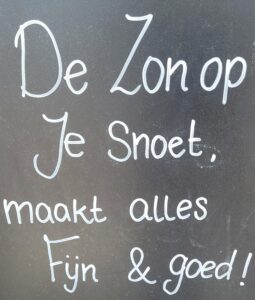 De Zon op
Je Snoet,
maakt alles
Fijn & goed!